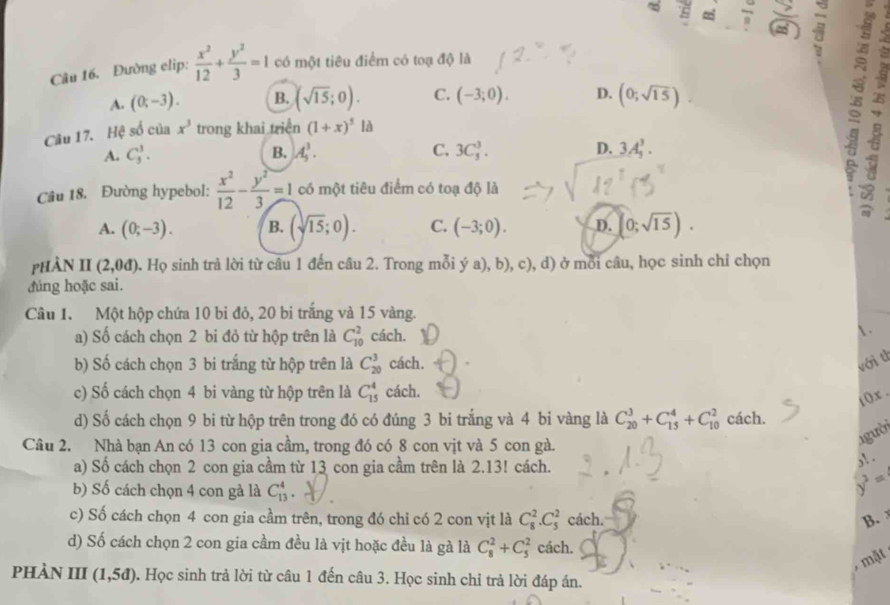 Câu 16. Đường elip: x²/12 + y²/3 = 1 có một tiêu điểm có toạ độ là
A. (0;−3). B. (√15;0). C. (−3;0). D. (0;√15).
Câu 17. Hệ số của x³ trong khai triển (1+x)⁵ là
A. C₅³. B. A₅³. C. 3C₅³. D. 3A₅³.
Câu 18. Đường hypebol: x²/12 − y²/3 = 1 có một tiêu điểm có toạ độ là
A. (0;−3). B. (√15;0). C. (−3;0). D. (0;√15).
PHẦN II (2,0đ). Họ sinh trả lời từ câu 1 đến câu 2. Trong mỗi ý a), b), c), d) ở mỗi câu, học sinh chỉ chọn
đúng hoặc sai.
Câu 1. Một hộp chứa 10 bi đỏ, 20 bi trắng và 15 vàng.
a) Số cách chọn 2 bi đỏ từ hộp trên là C₁₀² cách. Đ
b) Số cách chọn 3 bi trắng từ hộp trên là C₂₀³ cách. Đ
c) Số cách chọn 4 bi vàng từ hộp trên là C₁₅⁴ cách. Đ
d) Số cách chọn 9 bi từ hộp trên trong đó có đúng 3 bi trắng và 4 bi vàng là C₂₀³ + C₁₅⁴ + C₁₀² cách. S
Câu 2. Nhà bạn An có 13 con gia cầm, trong đó có 8 con vịt và 5 con gà.
a) Số cách chọn 2 con gia cầm từ 13 con gia cầm trên là 2.13! cách.
b) Số cách chọn 4 con gà là C₁₃⁴.
c) Số cách chọn 4 con gia cầm trên, trong đó chỉ có 2 con vịt là C₈².C₅² cách.
d) Số cách chọn 2 con gia cầm đều là vịt hoặc đều là gà là C₈² + C₅² cách.
PHẦN III (1,5đ). Học sinh trả lời từ câu 1 đến câu 3. Học sinh chỉ trả lời đáp án.
B.
B.
chứa 10 bi đỏ, 20 bi trắng
a) Số cách chọn 4 bi vàng từ
1.
với
10x
người
y² =
B.
, mật